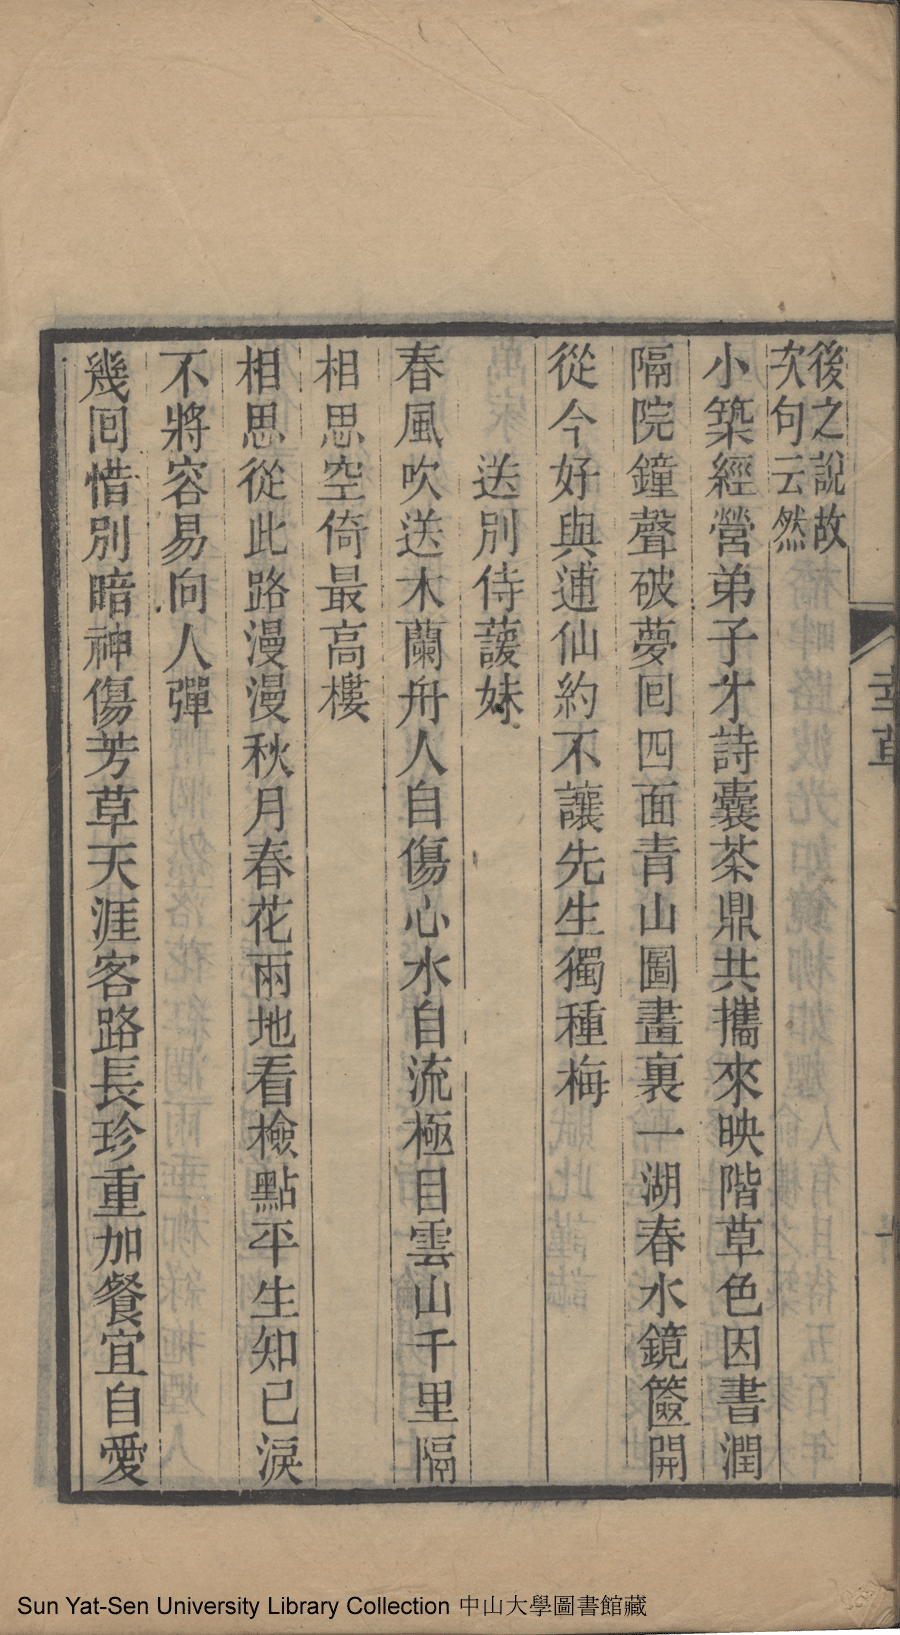 後之説故
次句云然
小築經營弟子才詩囊茶鼎共攜來映階草色因書潤
隔院鐘聲破夢回四面青山圖畫裏一湖春水鏡簽開
從今好與逋仙約不讓先生獨種梅
送別侍蘐妹
春風吹送木蘭舟人自傷心水自流極目雲山千里隔
相思空倚最高樓
相思從此路漫漫秋月春花兩地看檢點平生知己淚
不將容易向人彈
幾回惜別暗神傷芳草天涯客路長珍重加餐宜自愛
Sun Yat-Sen University Library Collection 中山大學圖書館藏